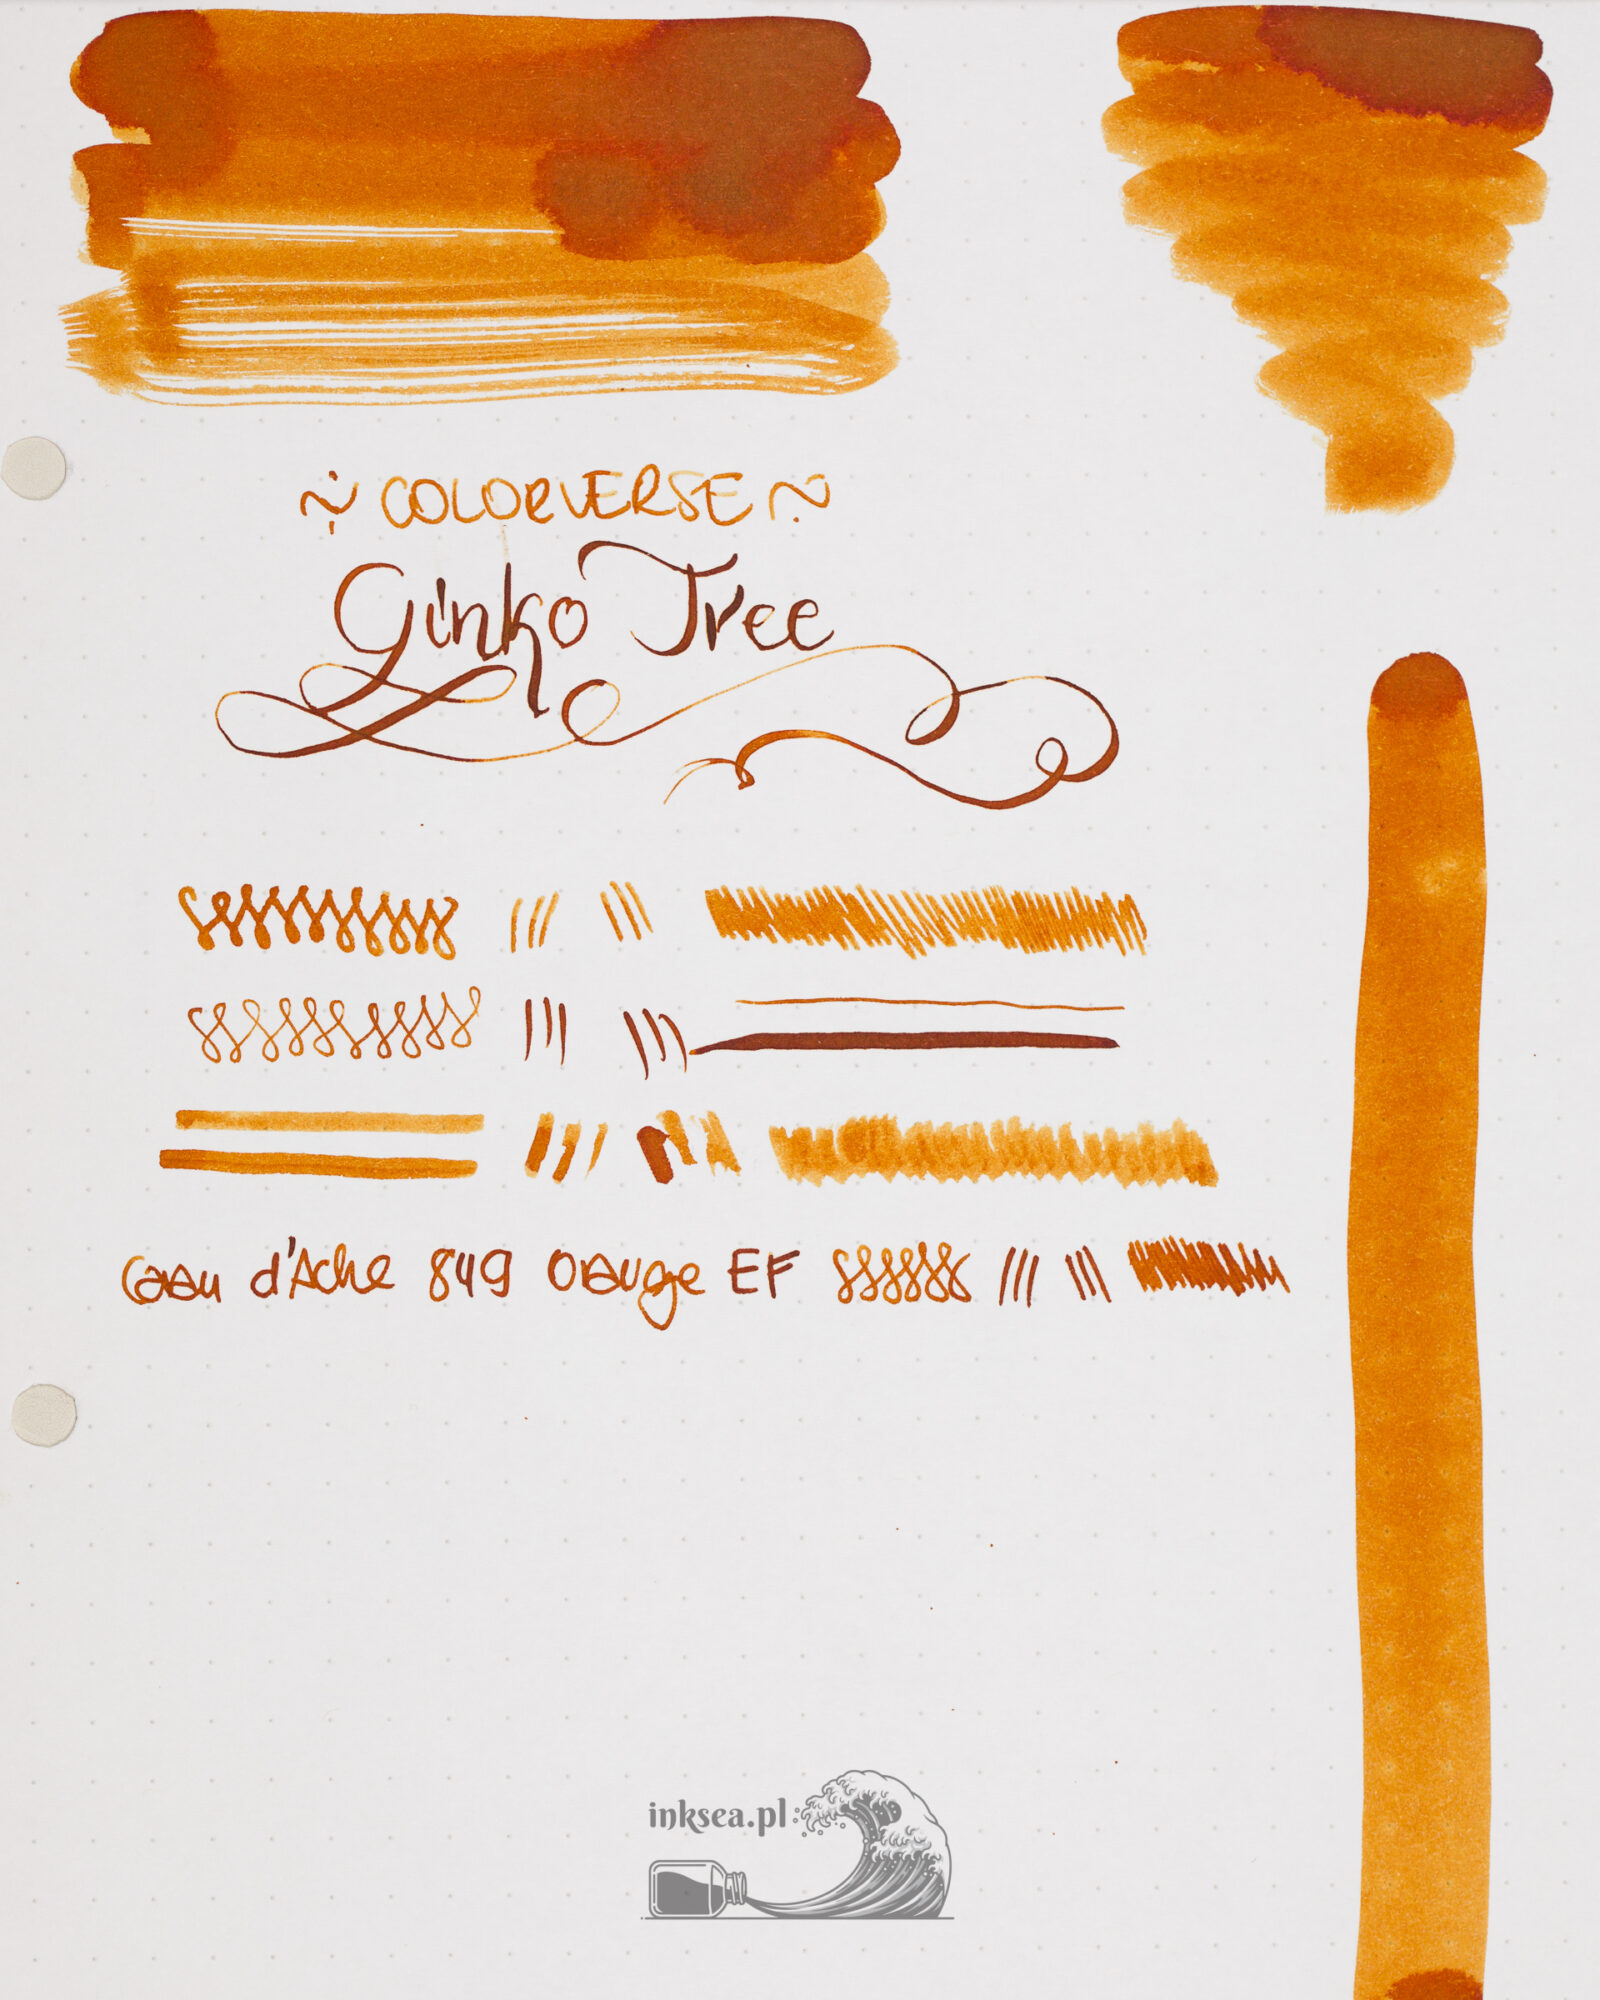 ~ COLORVERSE ~
Ginko Tree
Caran d'Ache 849 Orange EF
inksea.pl